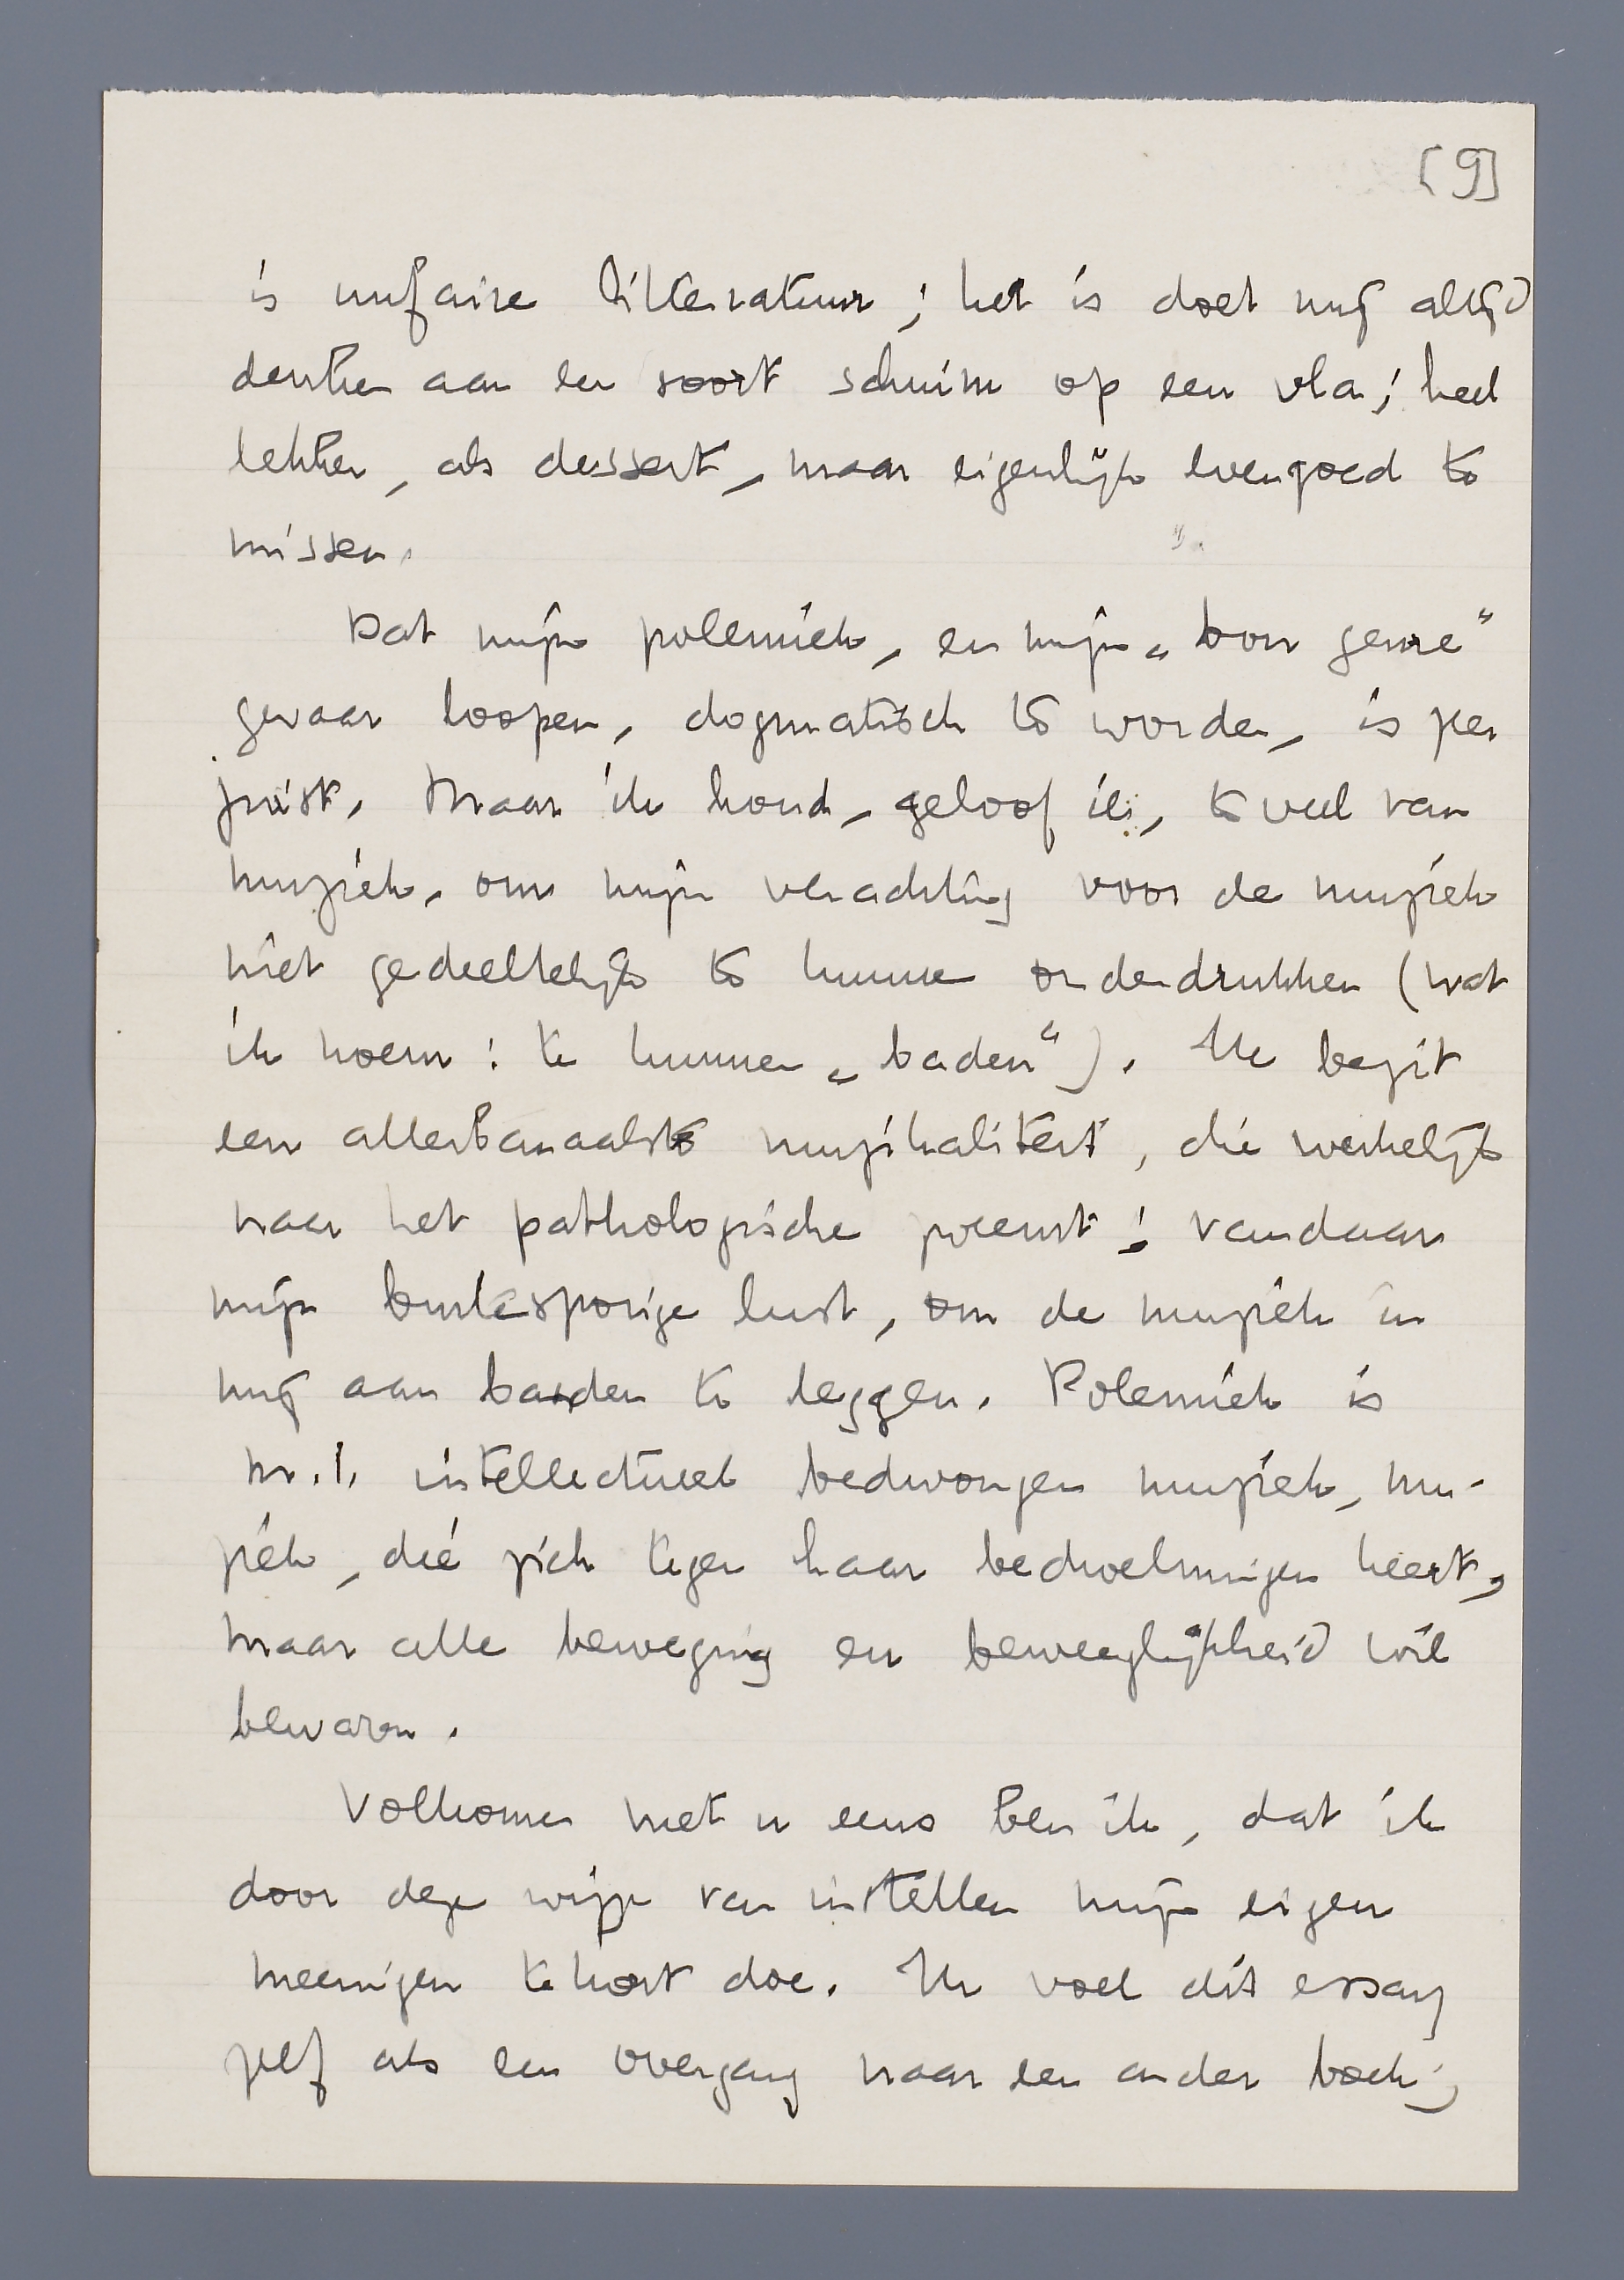 [9]
is unfaire litteratuur; het is doet mij altijd
denken aan een soort schuim op een vla; heel
lekker, als dessert, maar eigenlijk evengoed te
missen.
Dat mijn polemiek, en mijn „bon genre"
gevaar loopen, dogmatisch te worden, is zeer
juist. Maar ik houd, geloof ik, te veel van
muziek, om mijn verachting voor de muziek
niet gedeeltelijk te kunnen onderdrukken (wat
ik noem: te kunnen „baden"). Ik bezit
een allerbanaalste muzikaliteit, die werkelijk
naar het pathologische zweemt; vandaar
mijn buitensporige lust, om de muziek in
mij aan banden te leggen. Polemiek is
m.i. intellectueel bedwongen muziek, mu-
ziek, die zich tegen haar bedwelmingen keert,
maar alle beweging en beweeglijkheid wil
bewaren.
Volkomen met u eens ben ik, dat ik
door deze wijze van instellen mijn eigen
meeningen te kort doe. Ik voel dit essay
zelf als een overgang naar een ander boek;